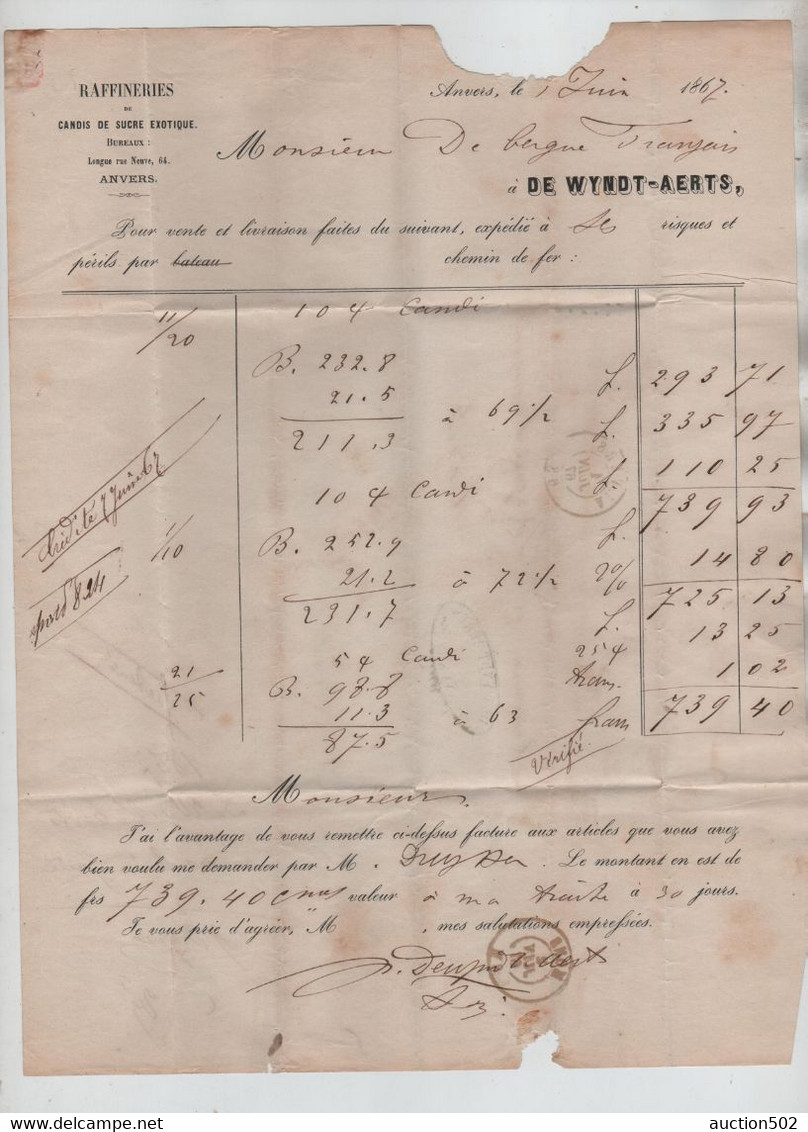 RAFFINERIES
DE
CANDIS DE SUCRE EXOTIQUE.
BUREAUX :
Longue rue Neuve, 64.
ANVERS.
Anvers, le 1 Juin 1867.
Monsieur De bergue Français
à DE WYNDT-AERTS,
Pour vente et livraison faites du suivant, expédié à risques et
périls par bateau chemin de fer :
11/20 104 Candi
B. 232.8
21.5
211.3 à 69 1/2 f. 293 71
f. 335 97
f. 110 25
739 93
1/10 104 Candi
B. 252.9
21.2
231.7 à 72 1/2 2% 14 80
f. 725 13
21/25 54 Candi 254 13 25
B. 98.8
11.3
87.5 à 63 1 02
739 40
Crédité 7 Juin 67
824
Vérifié.
Monsieur,
J'ai l'avantage de vous remettre ci-dessus facture aux articles que vous avez
bien voulu me demander par M. . Le montant en est de
frs 739.40 cmes valeur à ma traite à 30 jours.
Je vous prie d'agréer, M " , mes salutations empressées.
auction502